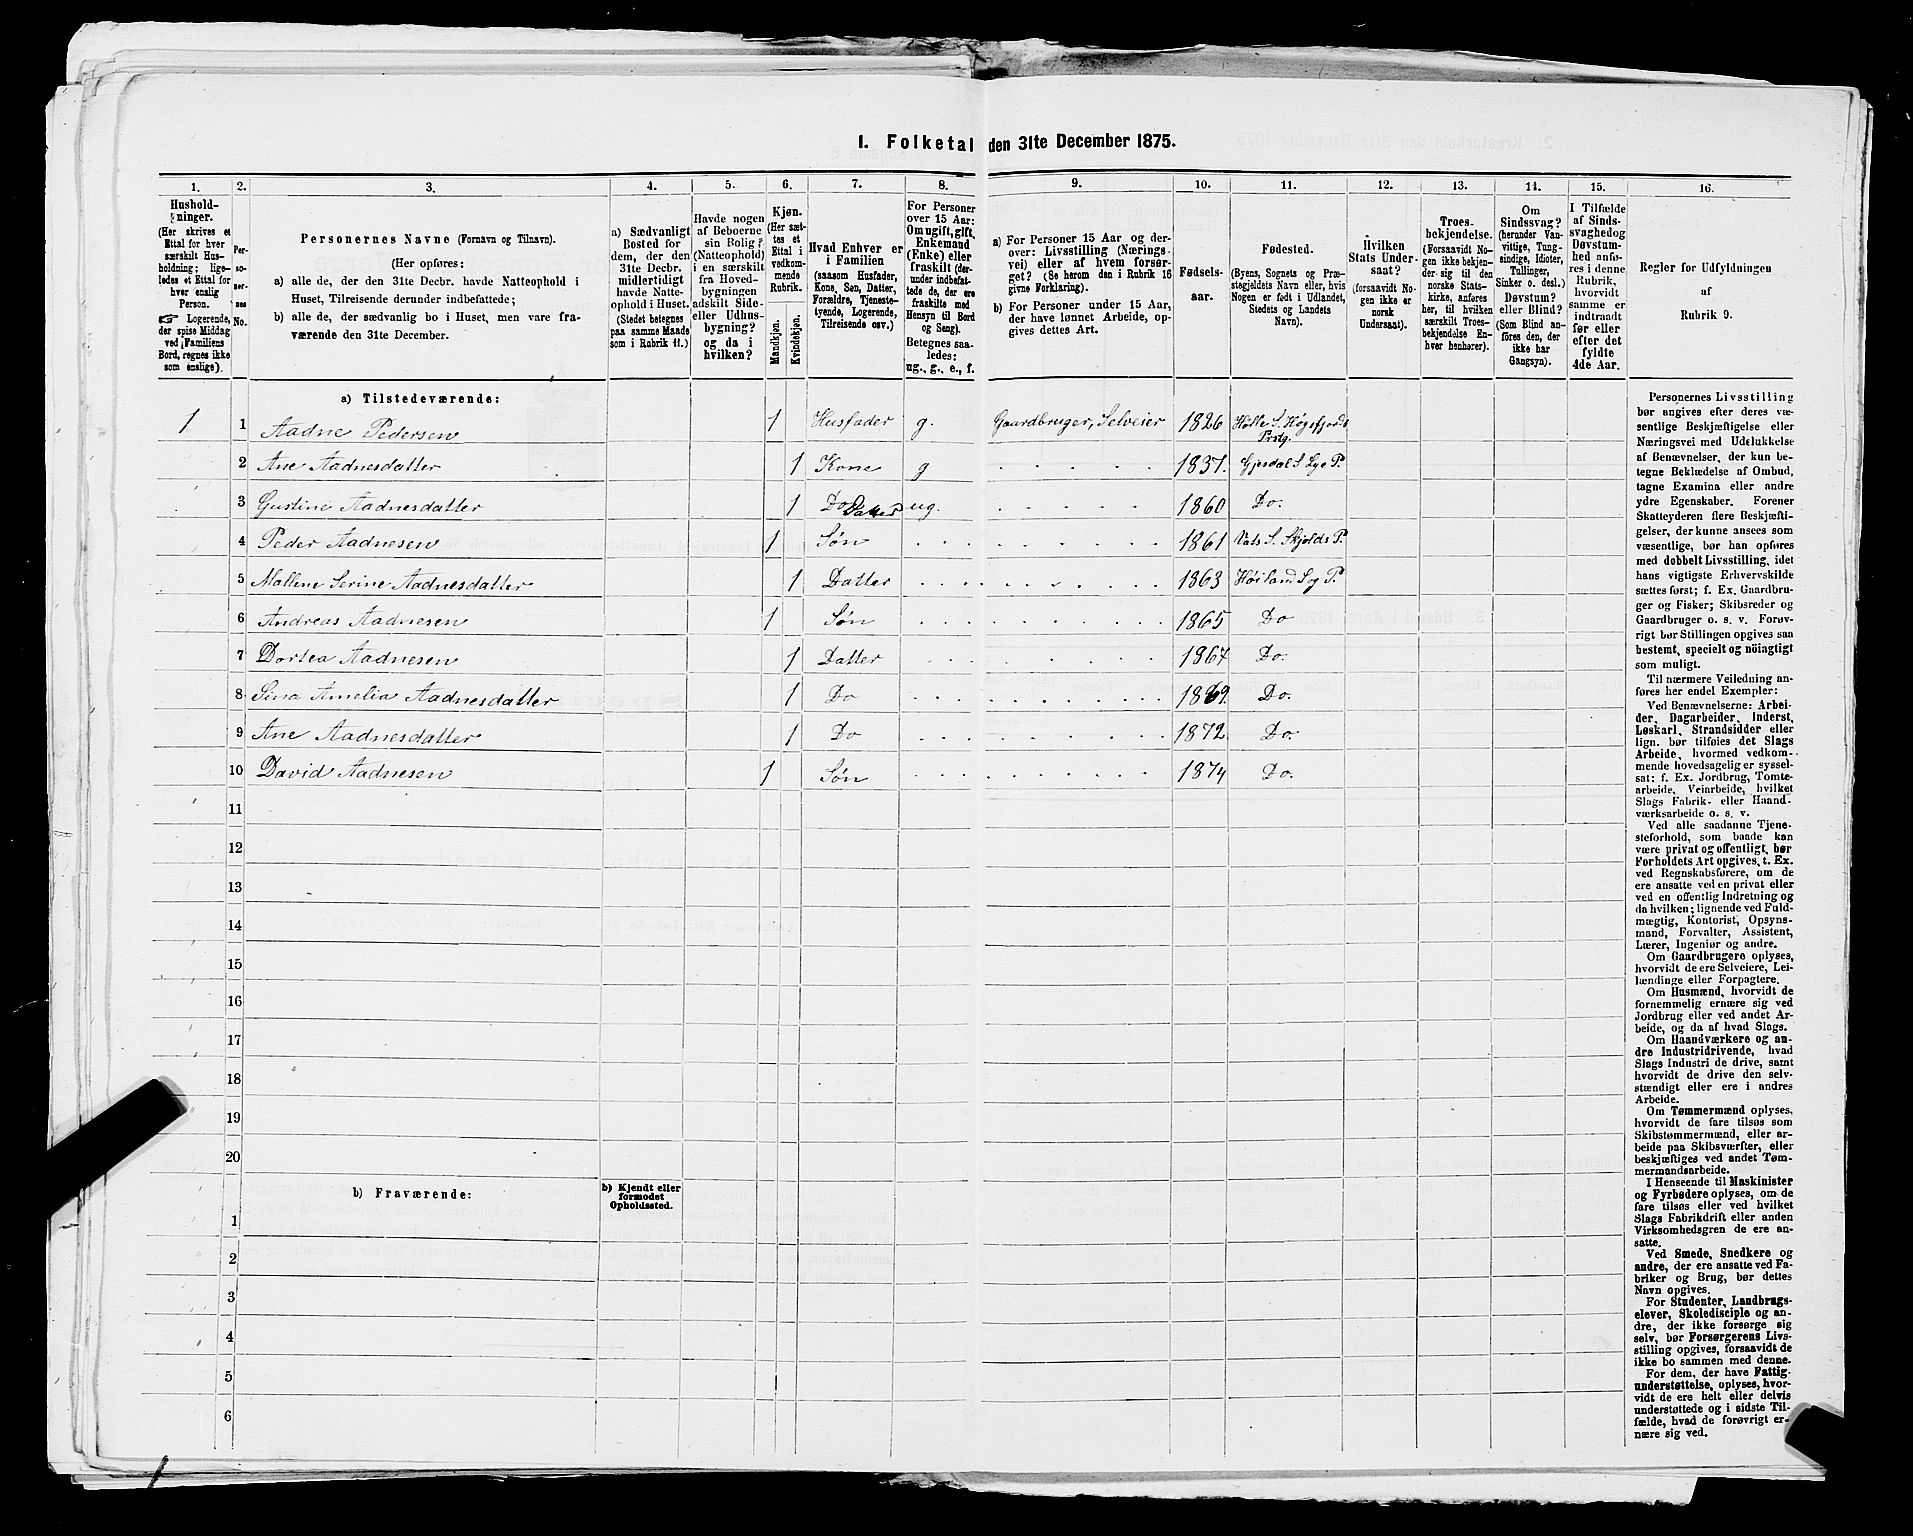 I. Folketal den 31te December 1875.
1. 2. 3. 4. 5. 6. 7. 8. 9. 10. 11. 12. 13. 14. 15. 16.
Hushold-
ninger.
(Her skrives et
Ettal for hver
særskilt Hus-
holdning; lige-
ledes et Ettal for
hver enslig
Person.
☞ Logerende,
der spise Middag
ved Familiens
Bord, regnes ikke
som enslige).
Per-
so-
ner-
nes
No.
Personernes Navne (Fornavn og Tilnavn).
(Her opføres:
a) alle de, der den 31te Decbr. havde Natteophold i
Huset, Tilreisende derunder indbefattede;
b) alle de, der sædvanlig bo i Huset, men vare fra-
værende den 31te December.
a) Sædvanligt
Bosted for
dem, der den
31te Decbr.
midlertidigt
havde Natte-
ophold i Huset.
(Stedet betegnes
paa samme Maade
som i Rubrik 11.)
Havde nogen
af Beboerne
sin Bolig?
(Natteophold)
i en særskilt
fra Hoved-
bygningen
adskilt Side-
eller Udhus-
bygning?
og da i
hvilken?
Kjøn.
(Her sæt-
tes et
Ettal i
vedkom-
mende
Rubrik.
Mandkjøn.
Kvindekjøn.
Hvad Enhver er
i Familien
(saasom Husfader,
Kone, Søn, Datter,
Forældre, Tjeneste-
tyende, Logerende,
Tilreisende osv.)
For Personer
over 15 Aar:
Om ugift, gift,
Enkemand
(Enke) eller
fraskilt (der-
under indbefat-
tede de, der ere
fraskilte med
Hensyn til Bord
og Seng)
Betegnes saa-
ledes:
ug., g., e., f.
a) For Personer 15 Aar og der-
over: Livsstilling (Nærings-
vei) eller af hvem forsør-
get? (Se herom den i Rubrik 16
givne Forklaring).
b) For Personer under 15 Aar,
der have lønnet Arbeide, op-
gives dettes Art.
Fødsels-
aar.
Fødested.
(Byens, Sognets og Præ-
stegjeldets Navn eller, hvis
Nogen er født i Udlandet,
Stedets og Landets
Navn).
Hvilken
Stats Under-
saat?
(forsaavidt No-
gen ikke er
norsk
Undersaat).
Troes-
bekjendelse.
(Forsaavidt No-
gen ikke bekjen-
der sig til den
norske Stats-
kirke, anføres
her, til hvilken
særskilt Troes-
bekjendelse En-
hver henhører).
Om
Sindssvag?
(herunder Van-
vittige, Tung-
sindige, Idioter,
Tullinger,
Sinker o. desl.)
Døvstum?
eller Blind?
(Som Blind an-
føres den, der
ikke har
Gangsyn).
I Tilfælde
af Sinds-
svaghed og
Døvstum-
hed anfø-
res i denne
Rubrik,
hvorvidt
samme er
indtraadt
før eller
efter det
fyldte
4de Aar.
Regler for Udfyldningen
af
Rubrik 9.
a) Tilstedeværende:
1 1 Aadne Pedersen 1 Husfader g. Gaardbruger, Selveier 1826 Hølle S. Høgsfjords
Prstg.
2 Ane Aadnesdatter 1 Kone g 1837. Gjesdal S. Lye P.
3 Gustine Aadnesdatter 1 Do Datter ug. 1860 Do.
4 Peder Aadnesen 1 Søn 1861 Vats S. Skjolds P.
5 Mallene Serine Aadnesdatter 1 Datter 1863 Høiland S og P.
6 Andreas Aadnesen 1 Søn 1865 Do
7 Dortea Aadnesen 1 Datter 1867 Do.
8 Sina Amelia Aadnesdatter 1 Do 1869. Do.
9 Ane Aadnesdatter 1 Do 1872 Do.
10 David Aadnesen 1 Søn 1874 Do.
11
12
13
14
15
16
17
18
19
20
b) Fraværende:
b) Kjendt eller
formodet
Opholdssted.
1
2
3
4
5
6
Personernes Livsstilling
bør angives efter deres væ-
sentlige Beskjæftigelse eller
Næringsvei med Udelukkelse
af Benævnelser, der kun be-
tegne Beklædelse af Ombud,
tagne Examina eller andre
ydre Egenskaber. Forener
Skatteyderen flere Beskjæfti-
gelser, der kunne ansees som
væsentlige, bør han opføres
med dobbelt Livsstilling, idet
hans vigtigste Erhvervskilde
sættes først; f. Ex. Gaardbru-
ger og Fisker; Skibsreder og
Gaardbruger o. s. v. Forøv-
rigt bør Stillingen opgives saa
bestemt, specielt og nöiagtigt
som muligt.
Til nærmere Veiledning an-
føres her endel Exempler:
Ved Benævnelserne: Arbei-
der, Dagarbeider, Inderst,
Løskarl, Strandsidder eller
lign. bør tilføies det Slags
Arbeide, hvormed vedkom-
mende hovedsagelig er syssel-
sat; f. Ex. Jordbrug, Tomte-
arbeide, Veiarbeide, hvilket
Slags Fabrik- eller Haand-
værksarbeide o. s. v.
Ved alle saadanne Tjene-
steforhold, som baade kan
være privat og offentligt, bør
Forholdets Art opgives, t. Ex.
ved Regnskabsførere, om de
ere ansatte ved en privat eller
ved en offentlig Indretning og
da hvilken; lignende ved Fuld-
mægtig, Kontorist, Opsyns-
mand, Forvalter, Assistent,
Lærer, Ingeniør og andre.
Om Gaardbrugere oplyses,
hvorvidt de ere Selveiere, Lei-
lændinge eller Forpagtere.
Om Husmænd, hvorvidt de
fornemmelig ernære sig ved
Jordbrug eller ved andet Ar-
beide, og da af hvad Slags.
Om Haandværkere og an-
dre Industridrivende, hvad
Slags Industri de drive, samt
hvorvidt de drive den selv-
stændigt eller ere i andres
Arbeide.
Om Tømmermænd oplyses,
hvorvidt de fare tilsøs som
Skibstømmermænd, eller ar-
beide paa Skibsværfter, eller
beskjæftiges ved andet Tøm-
mermandsarbeide.
I Henseende til Maskinister
og Fyrbødere oplyses, om de
fare tilsøs eller ved hvilket
Slags Fabrikdrift eller anden
Virksomhedsgren de ere an-
satte.
Ved Smede, Snedkere og
andre, der ere ansatte ved Fa-
briker og Brug, bør dettes
Navn opgives.
For Studenter, Landbrugs-
elever, Skoledisciple og an-
dre, der ikke forsørge sig
selv, bør Forsørgerens Livs-
stilling opgives, forsaavidt de
ikke bo sammen med denne.
For dem, der have Fattig-
understøttelse, oplyses, hvor-
vidt de ere helt eller delvis
understøttede og i sidste Til-
fælde, hvad de forøvrigt er-
nære sig ved.